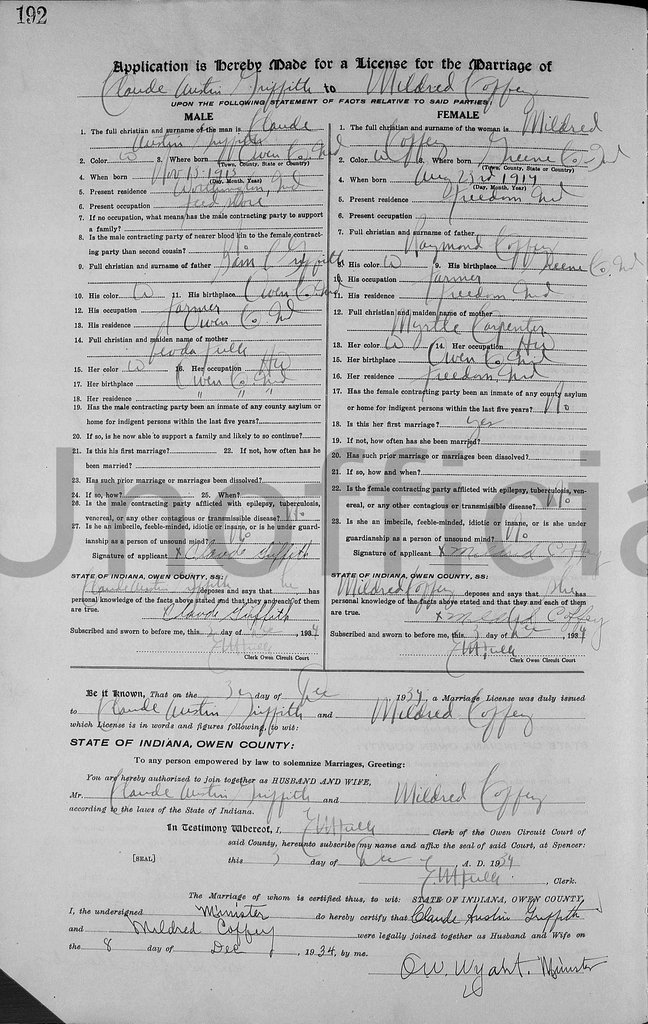 192
Application is Hereby Made for a License for the Marriage of
Claude Austin Griffith to Mildred Coffey
UPON THE FOLLOWING STATEMENT OF FACTS RELATIVE TO SAID PARTIES:
MALE
1. The full christian and surname of the man is Claude
Austin Griffith
2. Color W 3. Where born Owen Co, Ind
(Town, County, State or Country)
4. When born Nov 13-1913
(Day, Month, Year)
5. Present residence Worthington, Ind
6. Present occupation Feed Store
7. If no occupation, what means has the male contracting party to support
a family?
8. Is the male contracting party of nearer blood kin to the female contract-
ing party than second cousin? No
9. Full christian and surname of father Griffith
10. His color W 11. His birthplace Owen Co Ind
12. His occupation farmer
13. His residence Owen Co, Ind
14. Full christian and maiden name of mother
Fulk
15. Her color W 16. Her occupation HW
17. Her birthplace Owen Co Ind
18. Her residence " " "
19. Has the male contracting party been an inmate of any county asylum or
home for indigent persons within the last five years?
20. If so, is he now able to support a family and likely to so continue?
21. Is this his first marriage? 22. If not, how often has he
been married?
23. Has such prior marriage or marriages been dissolved?
24. If so, how? 25. When?
26. Is the male contracting party afflicted with epilepsy, tuberculosis,
venereal, or any other contagious or transmissible disease? No
27. Is he an imbecile, feeble-minded, idiotic or insane, or is he under guard-
ianship as a person of unsound mind? No
Signature of applicant x Claude Griffith
STATE OF INDIANA, OWEN COUNTY, SS:
Claude Austin Griffith deposes and says that he has
personal knowledge of the facts above stated and that they and each of them
are true. Claude Griffith
Subscribed and sworn to before me, this day of Dec, 1934
Clerk Owen Circuit Court
FEMALE
1. The full christian and surname of the woman is Mildred
Coffey
2. Color W 3. Where born Greene Co, Ind
(Town, County, State or Country)
4. When born Aug 23rd 1914
(Day, Month, Year)
5. Present residence Freedom Ind
6. Present occupation
7. Full christian and surname of father
Raymond Coffey
8. His color W 9. His birthplace Greene Co, Ind
10. His occupation farmer
11. His residence Freedom Ind
12. Full christian and maiden name of mother
Myrtle Carpenter
13. Her color W 14. Her occupation HW
15. Her birthplace Owen Co Ind
16. Her residence Freedom, Ind
17. Has the female contracting party been an inmate of any county asylum
or home for indigent persons within the last five years? No
18. Is this her first marriage? yes
19. If not, how often has she been married?
20. Has such prior marriage or marriages been dissolved?
21. If so, how and when?
22. Is the female contracting party afflicted with epilepsy, tuberculosis, ven-
ereal, or any other contagious or transmissible disease? No
23. Is she an imbecile, feeble-minded, idiotic or insane, or is she under
guardianship as a person of unsound mind? No
Signature of applicant x Mildred Coffey
STATE OF INDIANA, OWEN COUNTY, SS:
Mildred Coffey deposes and says that she has
personal knowledge of the facts above stated and that they and each of them
are true. x Mildred Coffey
Subscribed and sworn to before me, this day of Dec, 1934
Clerk Owen Circuit Court
Unofficia
Be it Known, That on the 3 day of Dec 1934, a Marriage License was duly issued
to Claude Austin Griffith and Mildred Coffey
which License is in words and figures following, to wit:
STATE OF INDIANA, OWEN COUNTY:
To any person empowered by law to solemnize Marriages, Greeting:
You are hereby authorized to join together as HUSBAND AND WIFE,
Mr. Claude Austin Griffith and Mildred Coffey
according to the laws of the State of Indiana.
In Testimony Whereof, I, Clerk of the Owen Circuit Court of
said County, hereunto subscribe my name and affix the seal of said Court, at Spencer:
[SEAL] this day of Dec, A. D. 1934
Clerk.
The Marriage of whom is certified thus, to wit: STATE OF INDIANA, OWEN COUNTY,
I, the undersigned Minister do hereby certify that Claude Austin Griffith
and Mildred Coffey were legally joined together as Husband and Wife on
the 8 day of Dec, 1934, by me.
O.W. Wyant. Minister